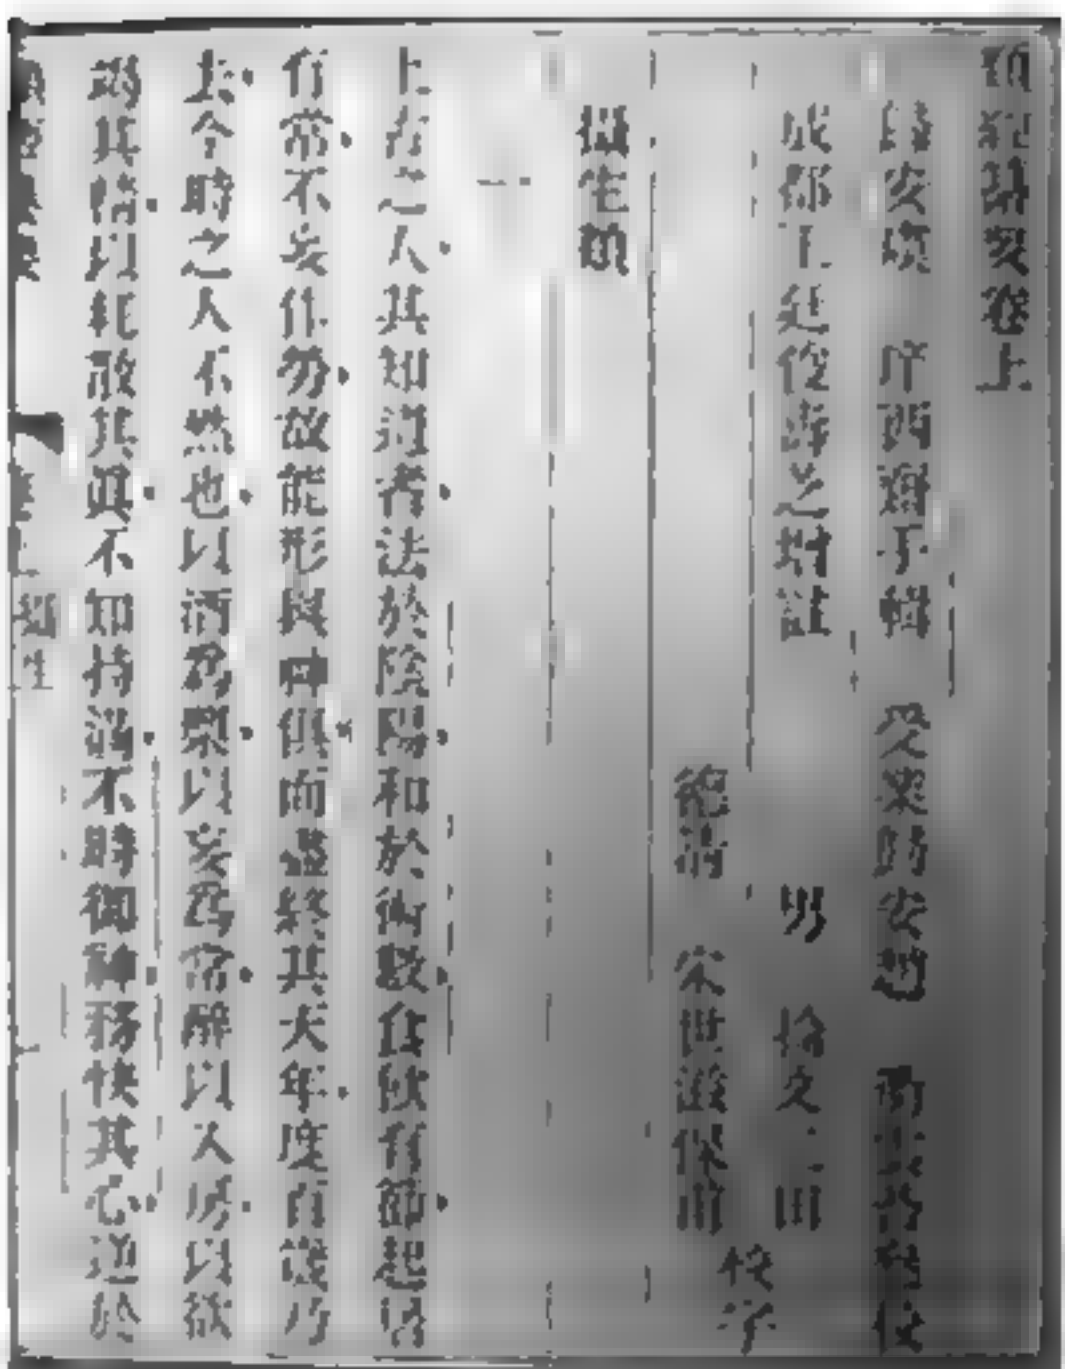 類經纂要卷上
臨安虞 庠西齋手輯 受業臨安趙
成都王廷俊壽芝增註 男 田
德清 宋世 保
校字
攝生類
一
上古之人其知道者法於陰陽和於術數食飲有節起居
有常不妄作勞故能形與神俱而盡終其天年度百歲乃
去今時之人不然也以酒爲漿以妄爲常醉以入房以欲
竭其精以耗散其眞不知持滿不時御神務快其心逆於